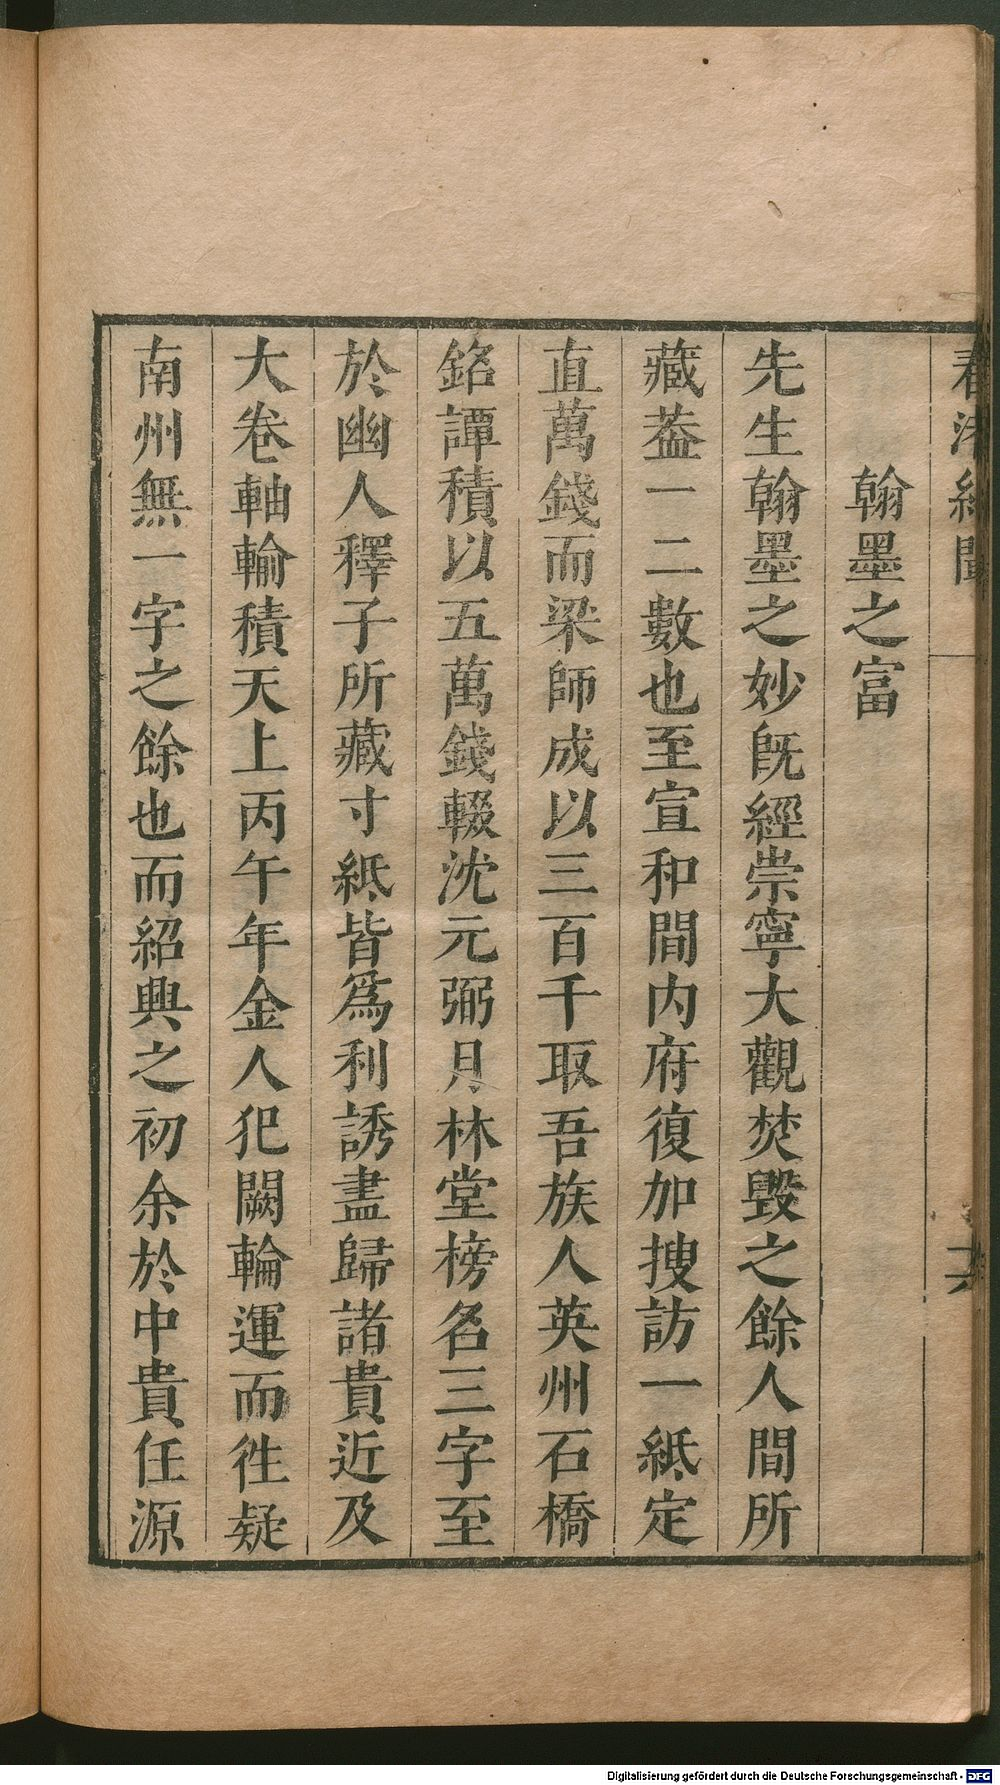 春渚紀聞
六
翰墨之富
先生翰墨之妙旣經崇寧大觀焚毀之餘人間所
藏葢一二數也至宣和間內府復加搜訪一紙定
直萬錢而梁師成以三百千取吾族人英州石橋
銘譚稹以五萬錢輟沈元弼月林堂榜名三字至
於幽人釋子所藏寸紙皆爲利誘盡歸諸貴近及
大卷軸輸積天上丙午年金人犯闕輪運而徃疑
南州無一字之餘也而紹興之初余於中貴任源
Digitalisierung gefördert durch die Deutsche Forschungsgemeinschaft - DFG